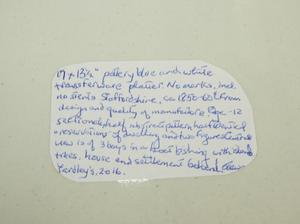 17 x 13½" pottery blue and white
transferware platter. No marks, incl.
no stents Staffordshire, ca 1850-60s from
design and quality of manufacture
sectional pattern has
reservations of dwelling and two figures
view is of 3 boys in a boat fishing with
trees, house and settlement behind.
Yardley's, 2016.